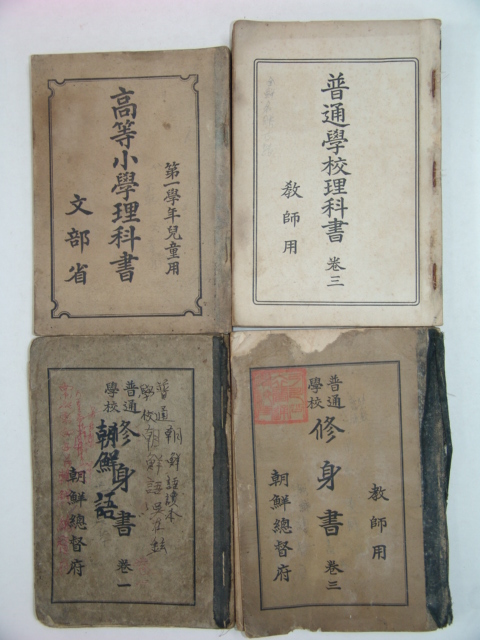 第一學年兒童用
高等小學理科書
文部省
普通學校理科書 卷三
教師用
普通
學校
修身書 卷一
朝鮮總督府
朝鮮語
普通
學校
朝鮮語讀本
朝鮮語
普通
學校
修身書 卷三
教師用
朝鮮總督府